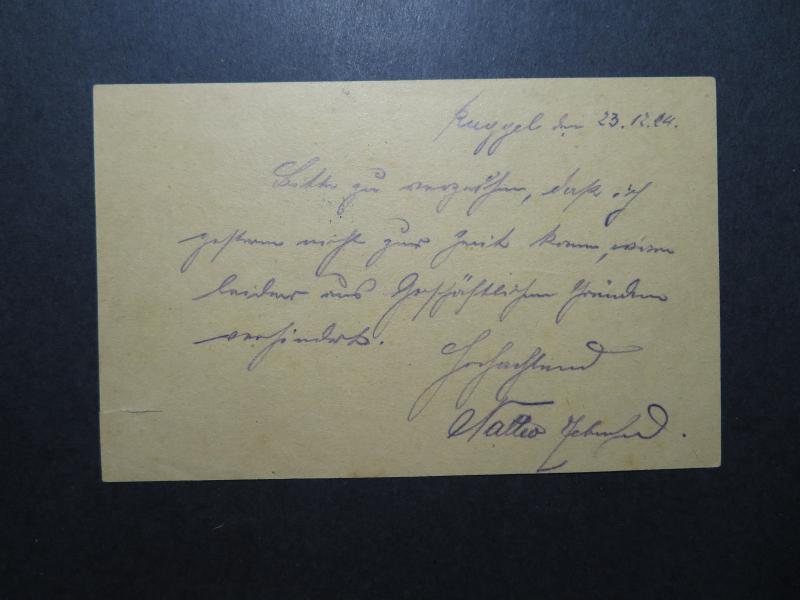 Ruggel den 23.12.24.
Bitte zu verzeihen, daß ich
gestern nicht zur Zeit kam, 
leider aus Geschäftlichen Gründen
verhindert.
Hochachtend